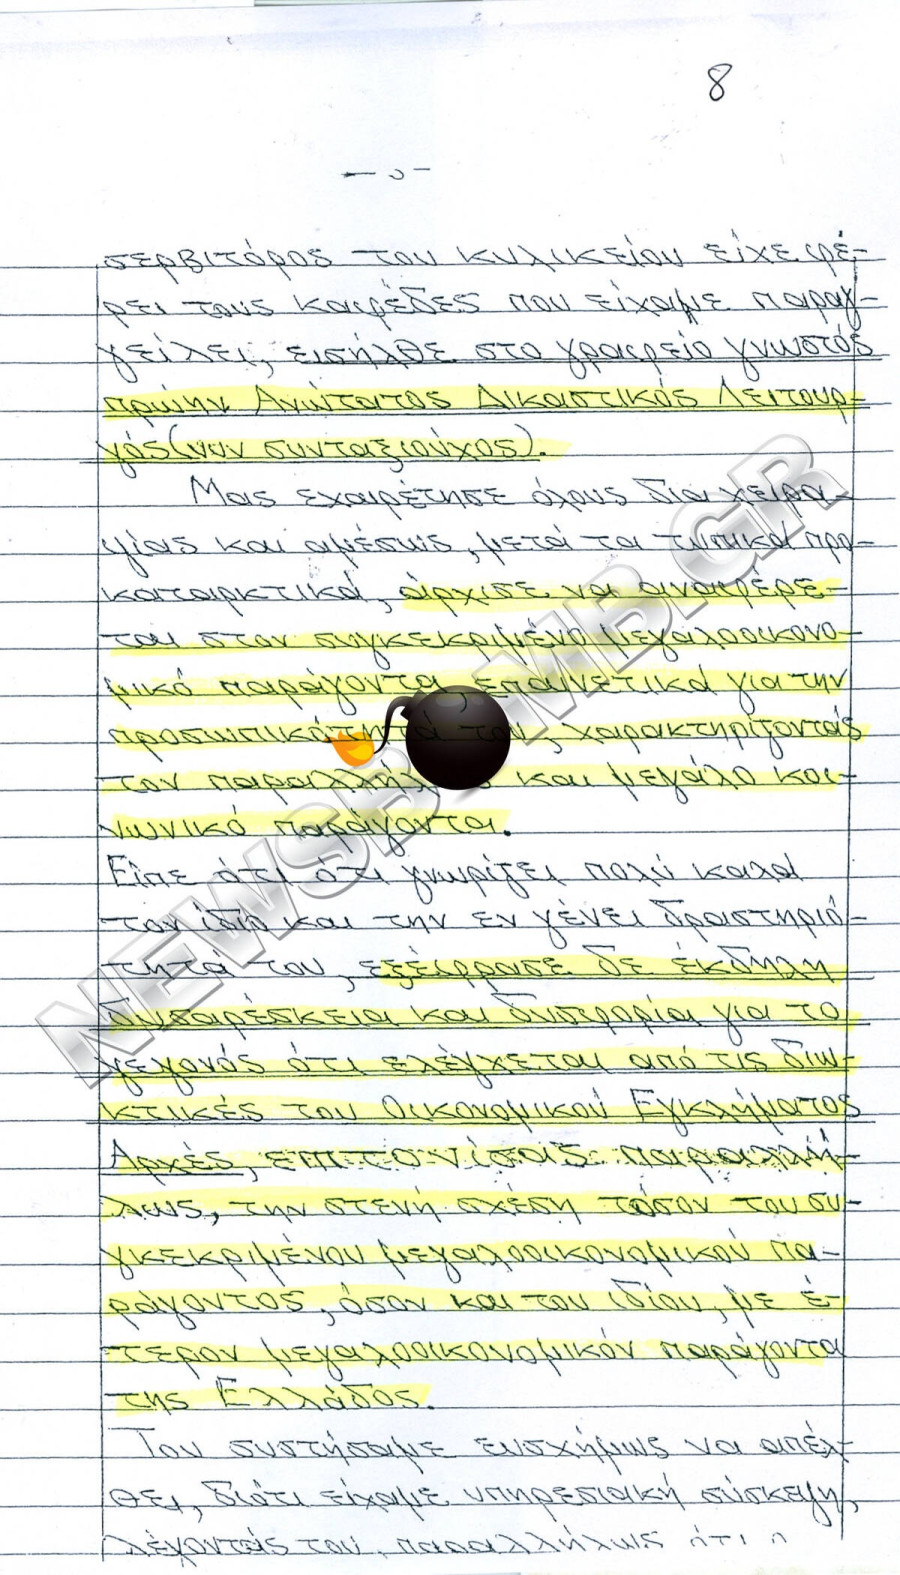 8
σερβιτόρος του κυλικείου είχε φέ-
ρει τους καφέδες που είχαμε παραγ-
γείλει, εισήλθε στο γραφείο γνωστός
πρώην Ανώτατος Δικαστικός Λειτουρ-
γός (νυν συνταξιούχος).
Μας εχαιρέτησε όλους δια χειρα-
ψίας και αμέσως, μετά τα τυπικά προ-
καταρκτικά, άρχισε να αναφέρε-
ται στον συγκεκριμένο μεγαλοοικονο-
μικό παράγοντα, επαινετικά για την
προσωπικότητά του, χαρακτηρίζοντάς
τον και μεγάλο κοι-
νωνικό παράγοντα.
Είπε ότι ότι γνωρίζει πολύ καλά
τον ίδιο και την εν γένει δραστηριό-
τητά του, εξέφρασε δε έκδηλη
δυσαρέσκεια και δυσφορία για το
γεγονός ότι ελέγχεται από τις διω-
κτικές του Οικονομικού Εγκλήματος
Αρχές, επιτονίσας παραλλή-
λως, την στενή σχέση τόσον του συ-
γκεκριμένου μεγαλοοικονομικού πα-
ράγοντος, όσον και του ιδίου, με έ-
τερον μεγαλοοικονομικόν παράγοντα
της Ελλάδος.
Του συστήσαμε ευσχήμως να απέλ-
θει, διότι είχαμε υπηρεσιακή σύσκεψη,
λέγοντάς του παραλλήλως ότι η
NEWSB MB.GR